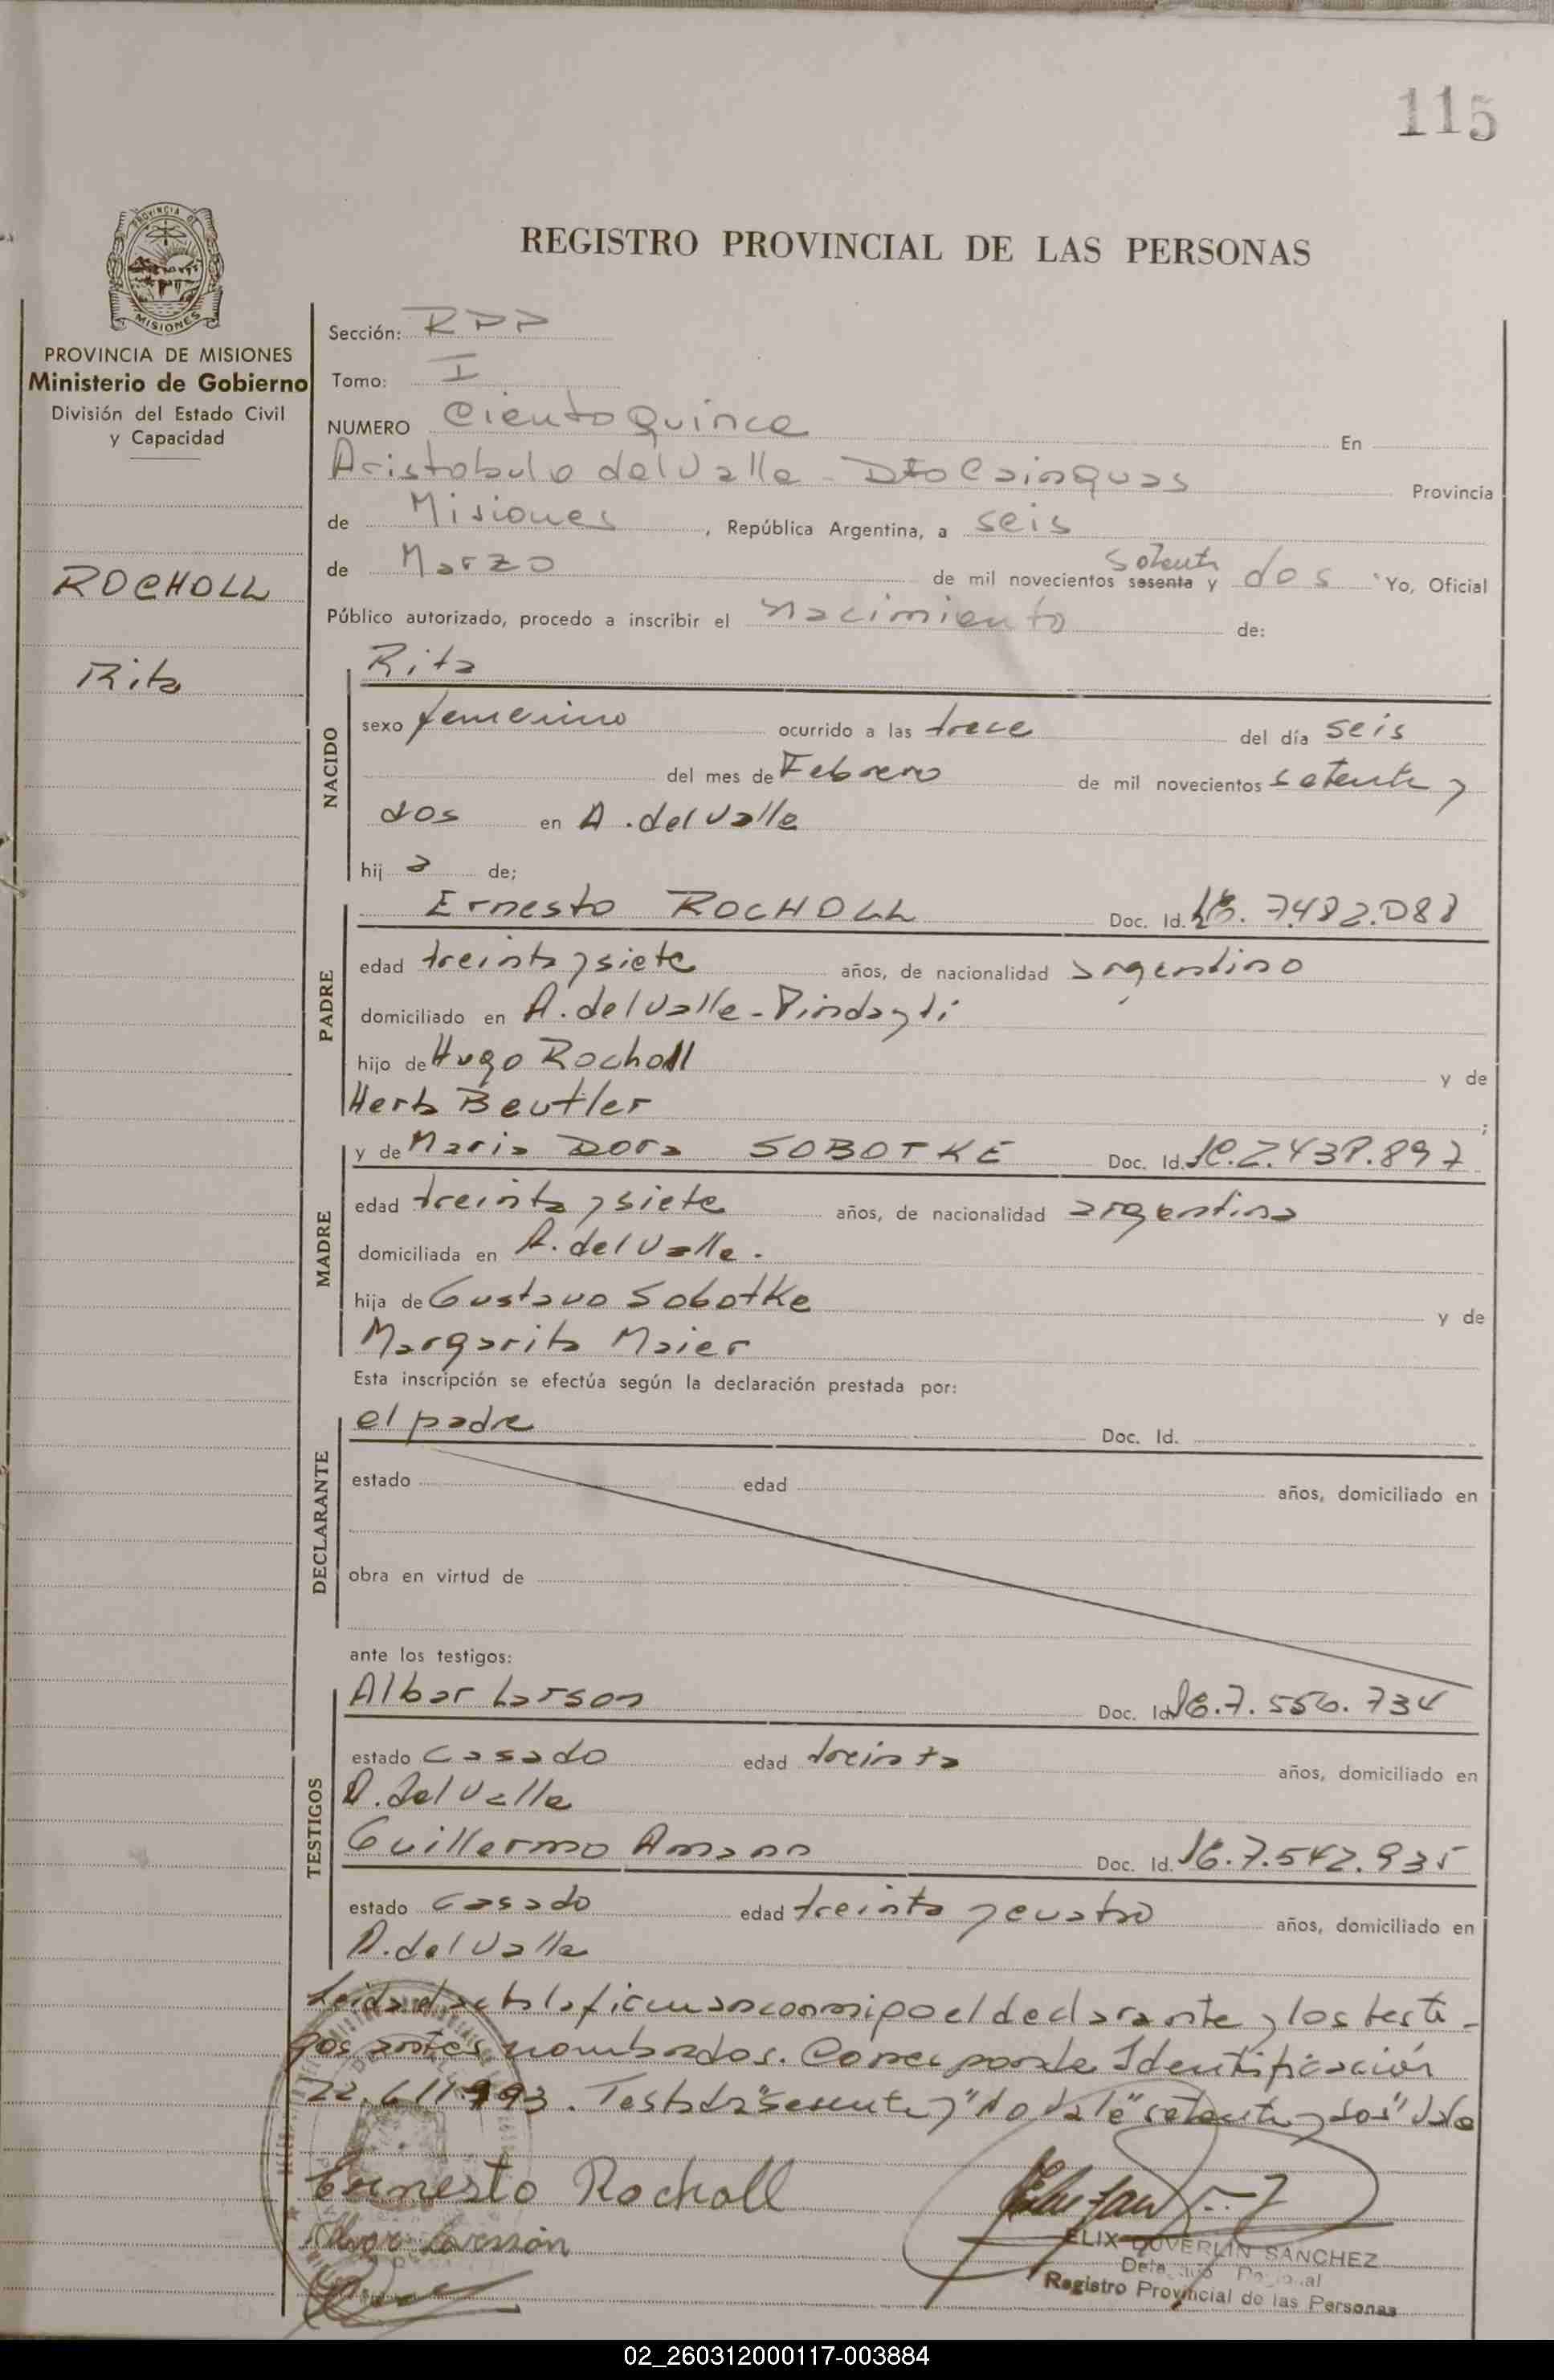 115
PROVINCIA DE
MISIONES
REGISTRO PROVINCIAL DE LAS PERSONAS
PROVINCIA DE MISIONES
Ministerio de Gobierno
División del Estado Civil
y Capacidad
ROCHOLL
Rita
Sección: RPP
Tomo: I
NUMERO Ciento Quince En
Aristobulo del Valle - Dto Cainguas Provincia
de Misiones, República Argentina, a seis
de Marzo de mil novecientos sesenta y setenta dos Yo, Oficial
Público autorizado, procedo a inscribir el nacimiento de:
NACIDO
Rita
sexo femenino ocurrido a las trece del día seis
del mes de Febrero de mil novecientos setenta y
dos en A. del Valle
hij a de;
PADRE
Ernesto ROCHOLL Doc. Id. 7.482.088
edad treinta y siete años, de nacionalidad argentino
domiciliado en A. del Valle - Pindayti
hijo de Hugo Rocholl y de
Herta Beutler ;
MADRE
y de Maria Dora SOBOTKE Doc. Id. LC. 2.438.897
edad treinta y siete años, de nacionalidad argentina
domiciliada en A. del Valle.
hija de Gustavo Sobotke y de
Margarita Maier
Esta inscripción se efectúa según la declaración prestada por:
DECLARANTE
el padre Doc. Id.
estado edad años, domiciliado en
obra en virtud de
ante los testigos:
TESTIGOS
Albar Larson Doc. Id. 7.556.734
estado casado edad treinta años, domiciliado en
A. del Valle
Guillermo Amann Doc. Id. 7.542.935
estado casado edad treinta y cuatro años, domiciliado en
A. del Valle
Leida el acta la firman conmigo el declarante y los testi-
gos antes nombrados. Corresponde Identificación
22.611.993. Testado "sesenta y" no vale "setenta y dos" vale
Ernesto Rocholl
Larsson
ELIX OUVERLIN SANCHEZ
Registro Provincial de las Personas
02_260312000117-003884